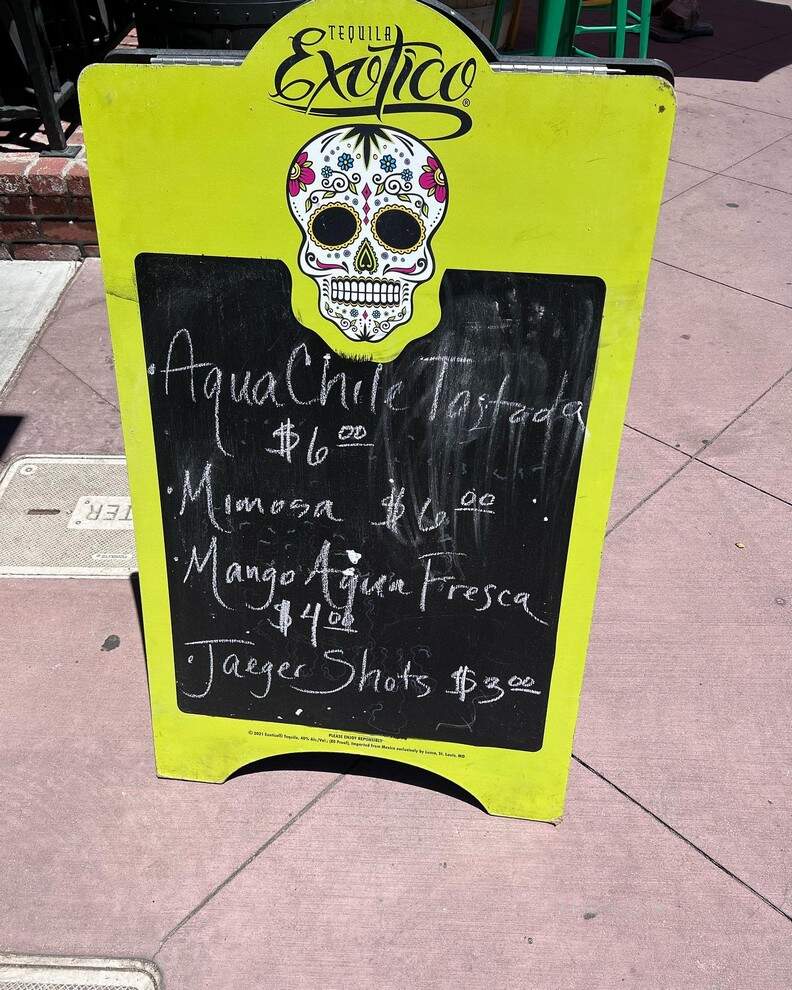 TEQUILA
Exotico®
·Aqua Chile Tostada
$6 00
·Mimosa $6 00
·Mango Agua Fresca
$4 00
·Jaeger Shots $3 00
PLEASE ENJOY RESPONSIBLY
© 2021 Exotico® Tequila, 40% Alc./Vol., (80 Proof), Imported from Mexico exclusively by Luxco, St. Louis, MO